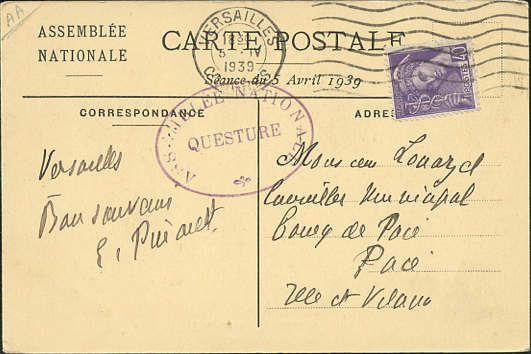 AA
ASSEMBLÉE
NATIONALE
CARTE POSTALE
VERSAILLES
5 - IV
1939
Séance du 5 Avril 1939
40
POSTES
CORRESPONDANCE
ADRES
ASSEMBLÉE NATIONALE
QUESTURE
Versailles
Bon souvenir
E.
Monsieur
Conseiller Municipal
Bourg de Pacé
Pacé
Ille et Vilaine